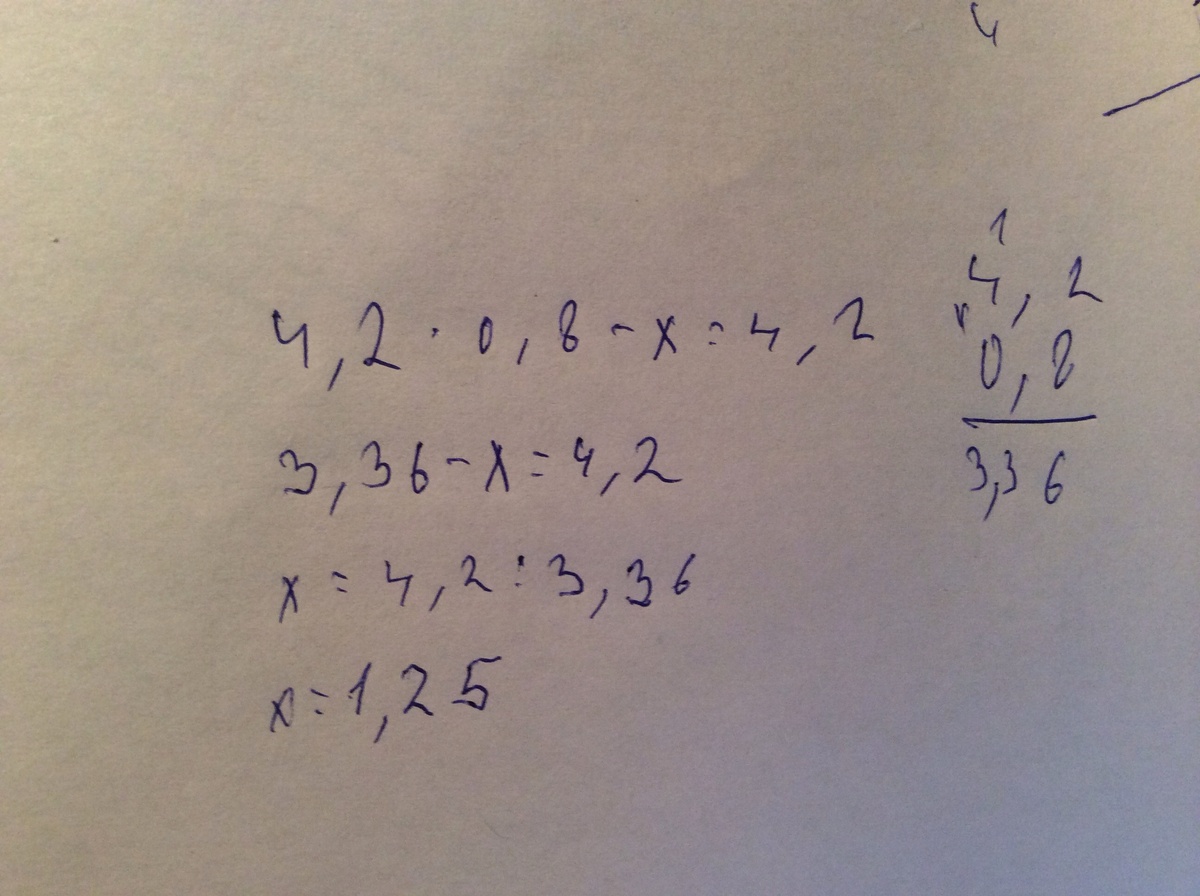 4
4,2 · 0,8 - x = 4,2
3,36 - x = 4,2
x = 4,2 : 3,36
x = 1,25
1
4,2
0,8
3,36